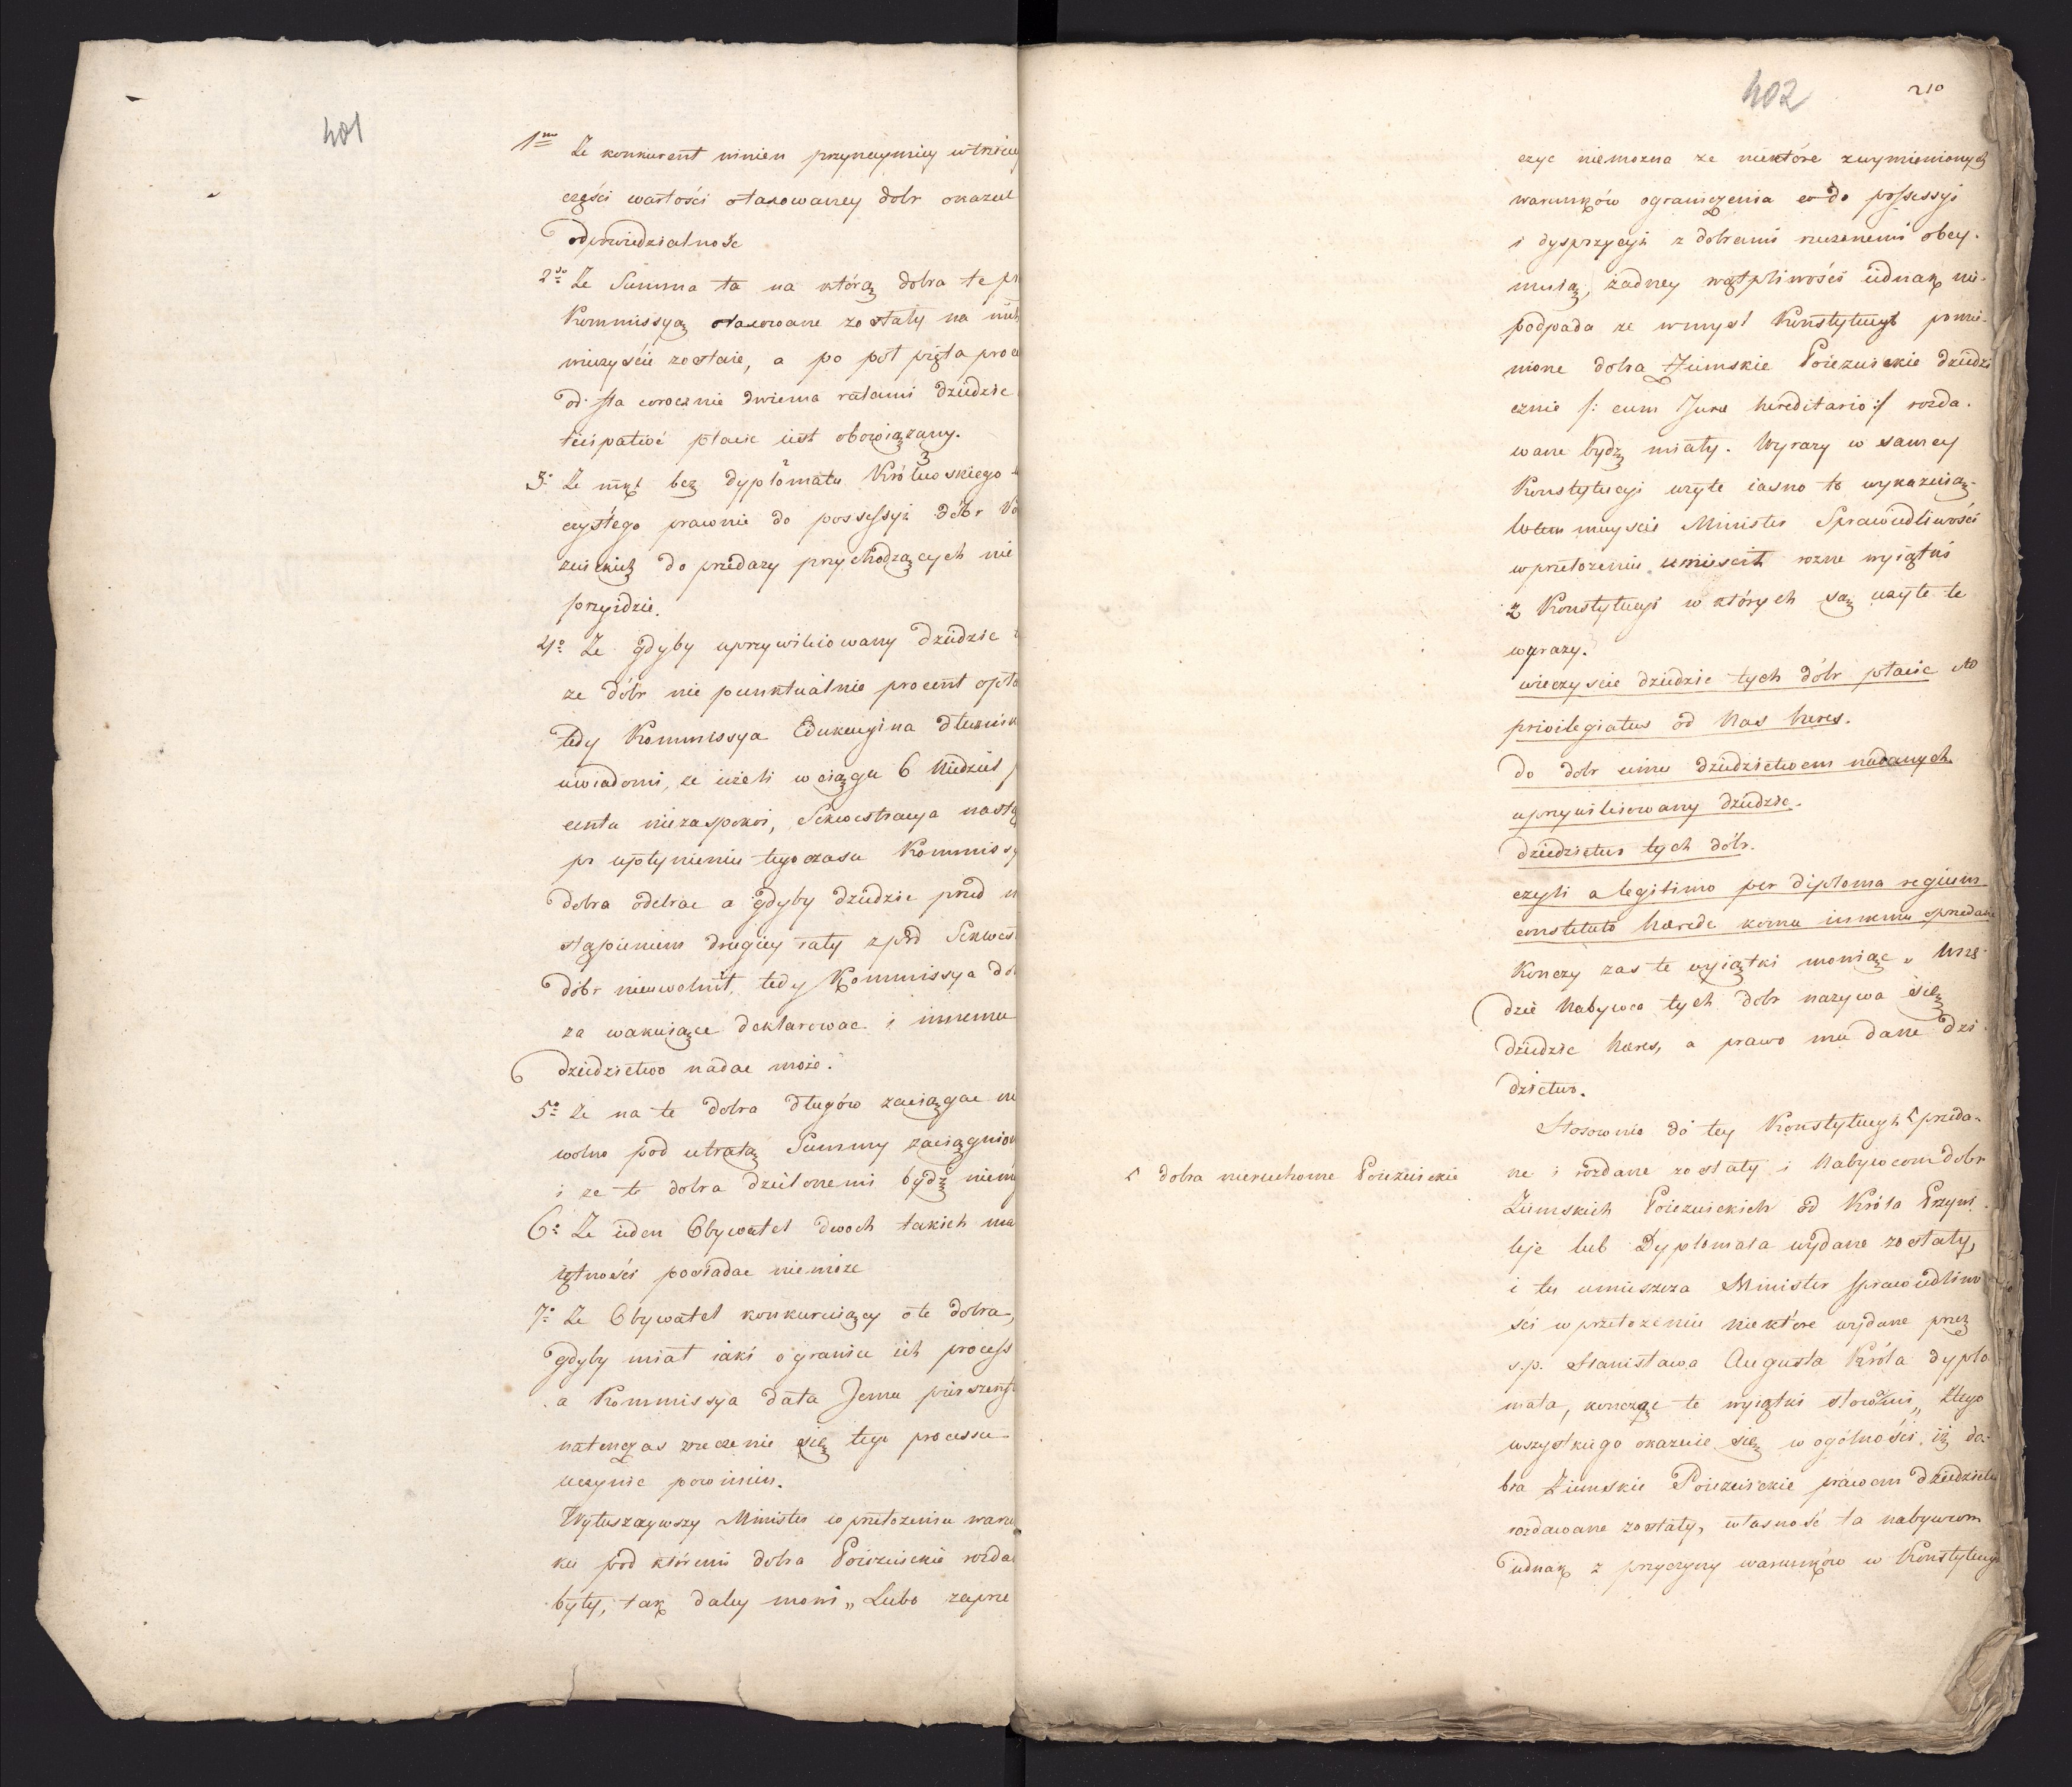 401
1mo Że konkurent winien przynaymniey w trzeciey
części wartości otaxowaney dobr okazać
odpowiedzialność
2do Że Summa ta na którą dobra te pr
Kommissyą otaxowane zostały na nich
wieczyście zostaie, a po pół piąta proce
od sta corocznie dwiema ratami dziedzic
ticipative płacić iest obowiązany.
3o Że nikt bez dyplomatu Królewskiego
czystego prawnie do possessyi dóbr Po
zuickich do przedazy przychodzących nie
przyidzie.
4o Że gdyby uprzywiliowany dziedzic
ze dóbr nie punktualnie procent opła
tedy Kommissya Edukacyina dłużnik
uwiadomi, że ieżeli w ciągu 6 Niedziel p
centu niezaspokoi, Sekwestracya nastą
po upłynieniu tego czasu Kommissy
dobra odebrać a gdyby dziedzic przed n
stąpieniem drugiey raty zpod Sekwes
dóbr nieuwolnił, tedy Kommissya do
za wakuiące deklarować i innemu
dziedzictwo nadać może.
5o Że na te dobra długów zaciągać nie
wolno pod utratą Summy zaciągnion
i że te dobra dzielonemi bydź niem
6o Że ieden Obywatel dwoch takich ma
iętności posiadać niemoże
7o Że Obywatel konkuruiący o te dobra,
gdyby miał iaki o granice ich process
a Kommissya dała Jemu pierszenst
natenczas zrzeczenie się tego processu
uczynić powinien.
Wyłuszczywszy Minister w przełożeniu warun
ki pod któremi dobra Poiezuickie rozda
były, tak daley mowi „ Lubo zaprze
402
210
czyc niemozna ze niektóre z wymienionych
warunków ograniczenia co do possessyi
i dyspozycyi z dobrami rzeczonemi obey-
muią, żadney wątpliwości iednak nie-
podpada ze w mysl Konstytucyi pomie-
nione dobra Ziemskie Poiezuickie dziedzi
cznie /: cum Jure hereditario :/ rozda-
wane bydź miały. Wyrazy w samey
Konstytucyi użyte iasno to wykazuią-
W tem mieyscu Minister Sprawiedliwości
w przełożeniu umieścił rozne wyiątki
z Konstytucyi w których są użyte te
wyrazy.
wieczyscie dziedzic tych dóbr płacić ma
privilegiatus od Nas hæres.
do dobr iemu dziedzictwem nadanych.
uprzywilliowany dziedzic.
dziedzictwo tych dóbr.
czyli a legitimo per diploma regium
constituto hærede komu innemu sprzedane
Konczy zas te wyiątki mowiąc „ Wszę-
dzie Nabywca tych dobr nazywa się
dziedzic hæres, a prawo mu dane dzi-
dzictwo.
Stosownie do tey Konstytucyi ⸢ przeda-
⸢ dobra nieruchome Poiezuickie
ne i rozdane zostały i Nabywcom dobr
Ziemskich Poiezuickich od Króla Przywi-
leje lub Dyplomata wydane zostały,
i tu umieszcza Minister sprawiedliwo
ści w przełożeniu niektóre wydane przez
s.p. Stanisława Augusta Króla dyplo
mata, konczac te wyiątki słowami „ Ztego
wszystkiego okazuie się w ogólności, iż do-
bra Ziemskie Poiezuickie prawem dziedzictwa
rozdawane zostały, własność ta nabywcom
iednak z przyczyny warunków w Konstytucyi